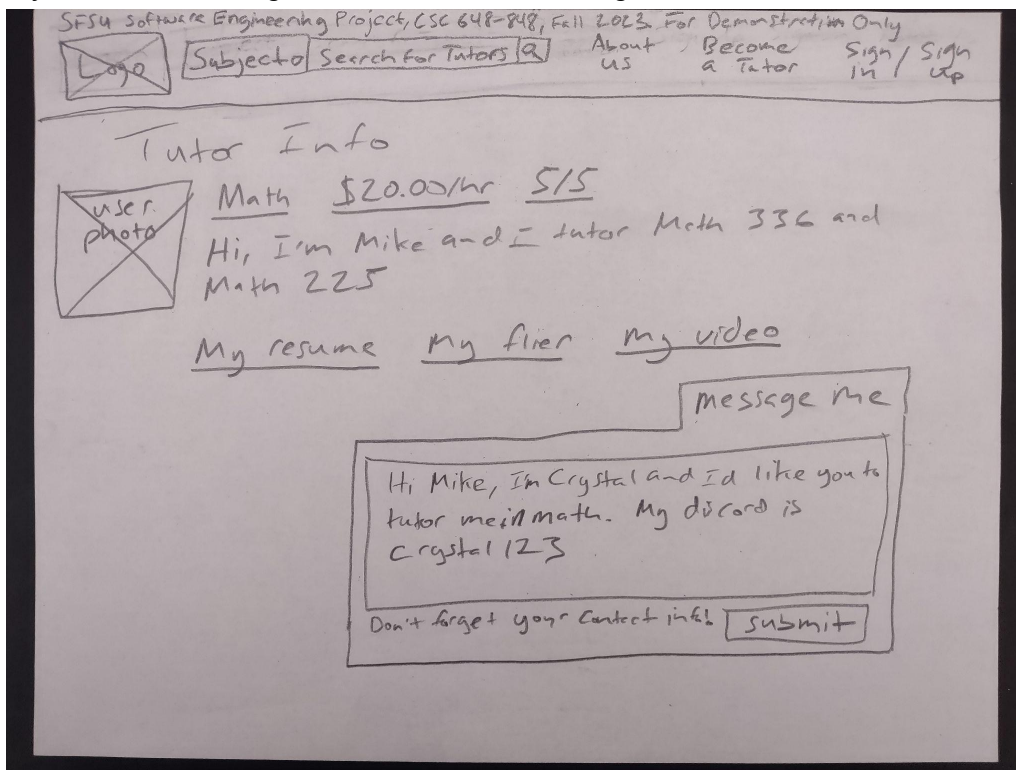 SFSU Software Engineering Project, CSC 648-848, Fall 2023. For Demonstration Only
Logo
Subject
Search for Tutors
About us
Become a Tutor
Sign in / Sign up
Tutor Info
user photo
Math $20.00/hr 5/5
Hi, I'm Mike and I tutor Math 336 and
Math 225
My resume My flier My video
message me
Hi Mike, I'm Crystal and Id like you to
tutor me in math. My discord is
Crystal 123
Don't forget your contact info!
submit